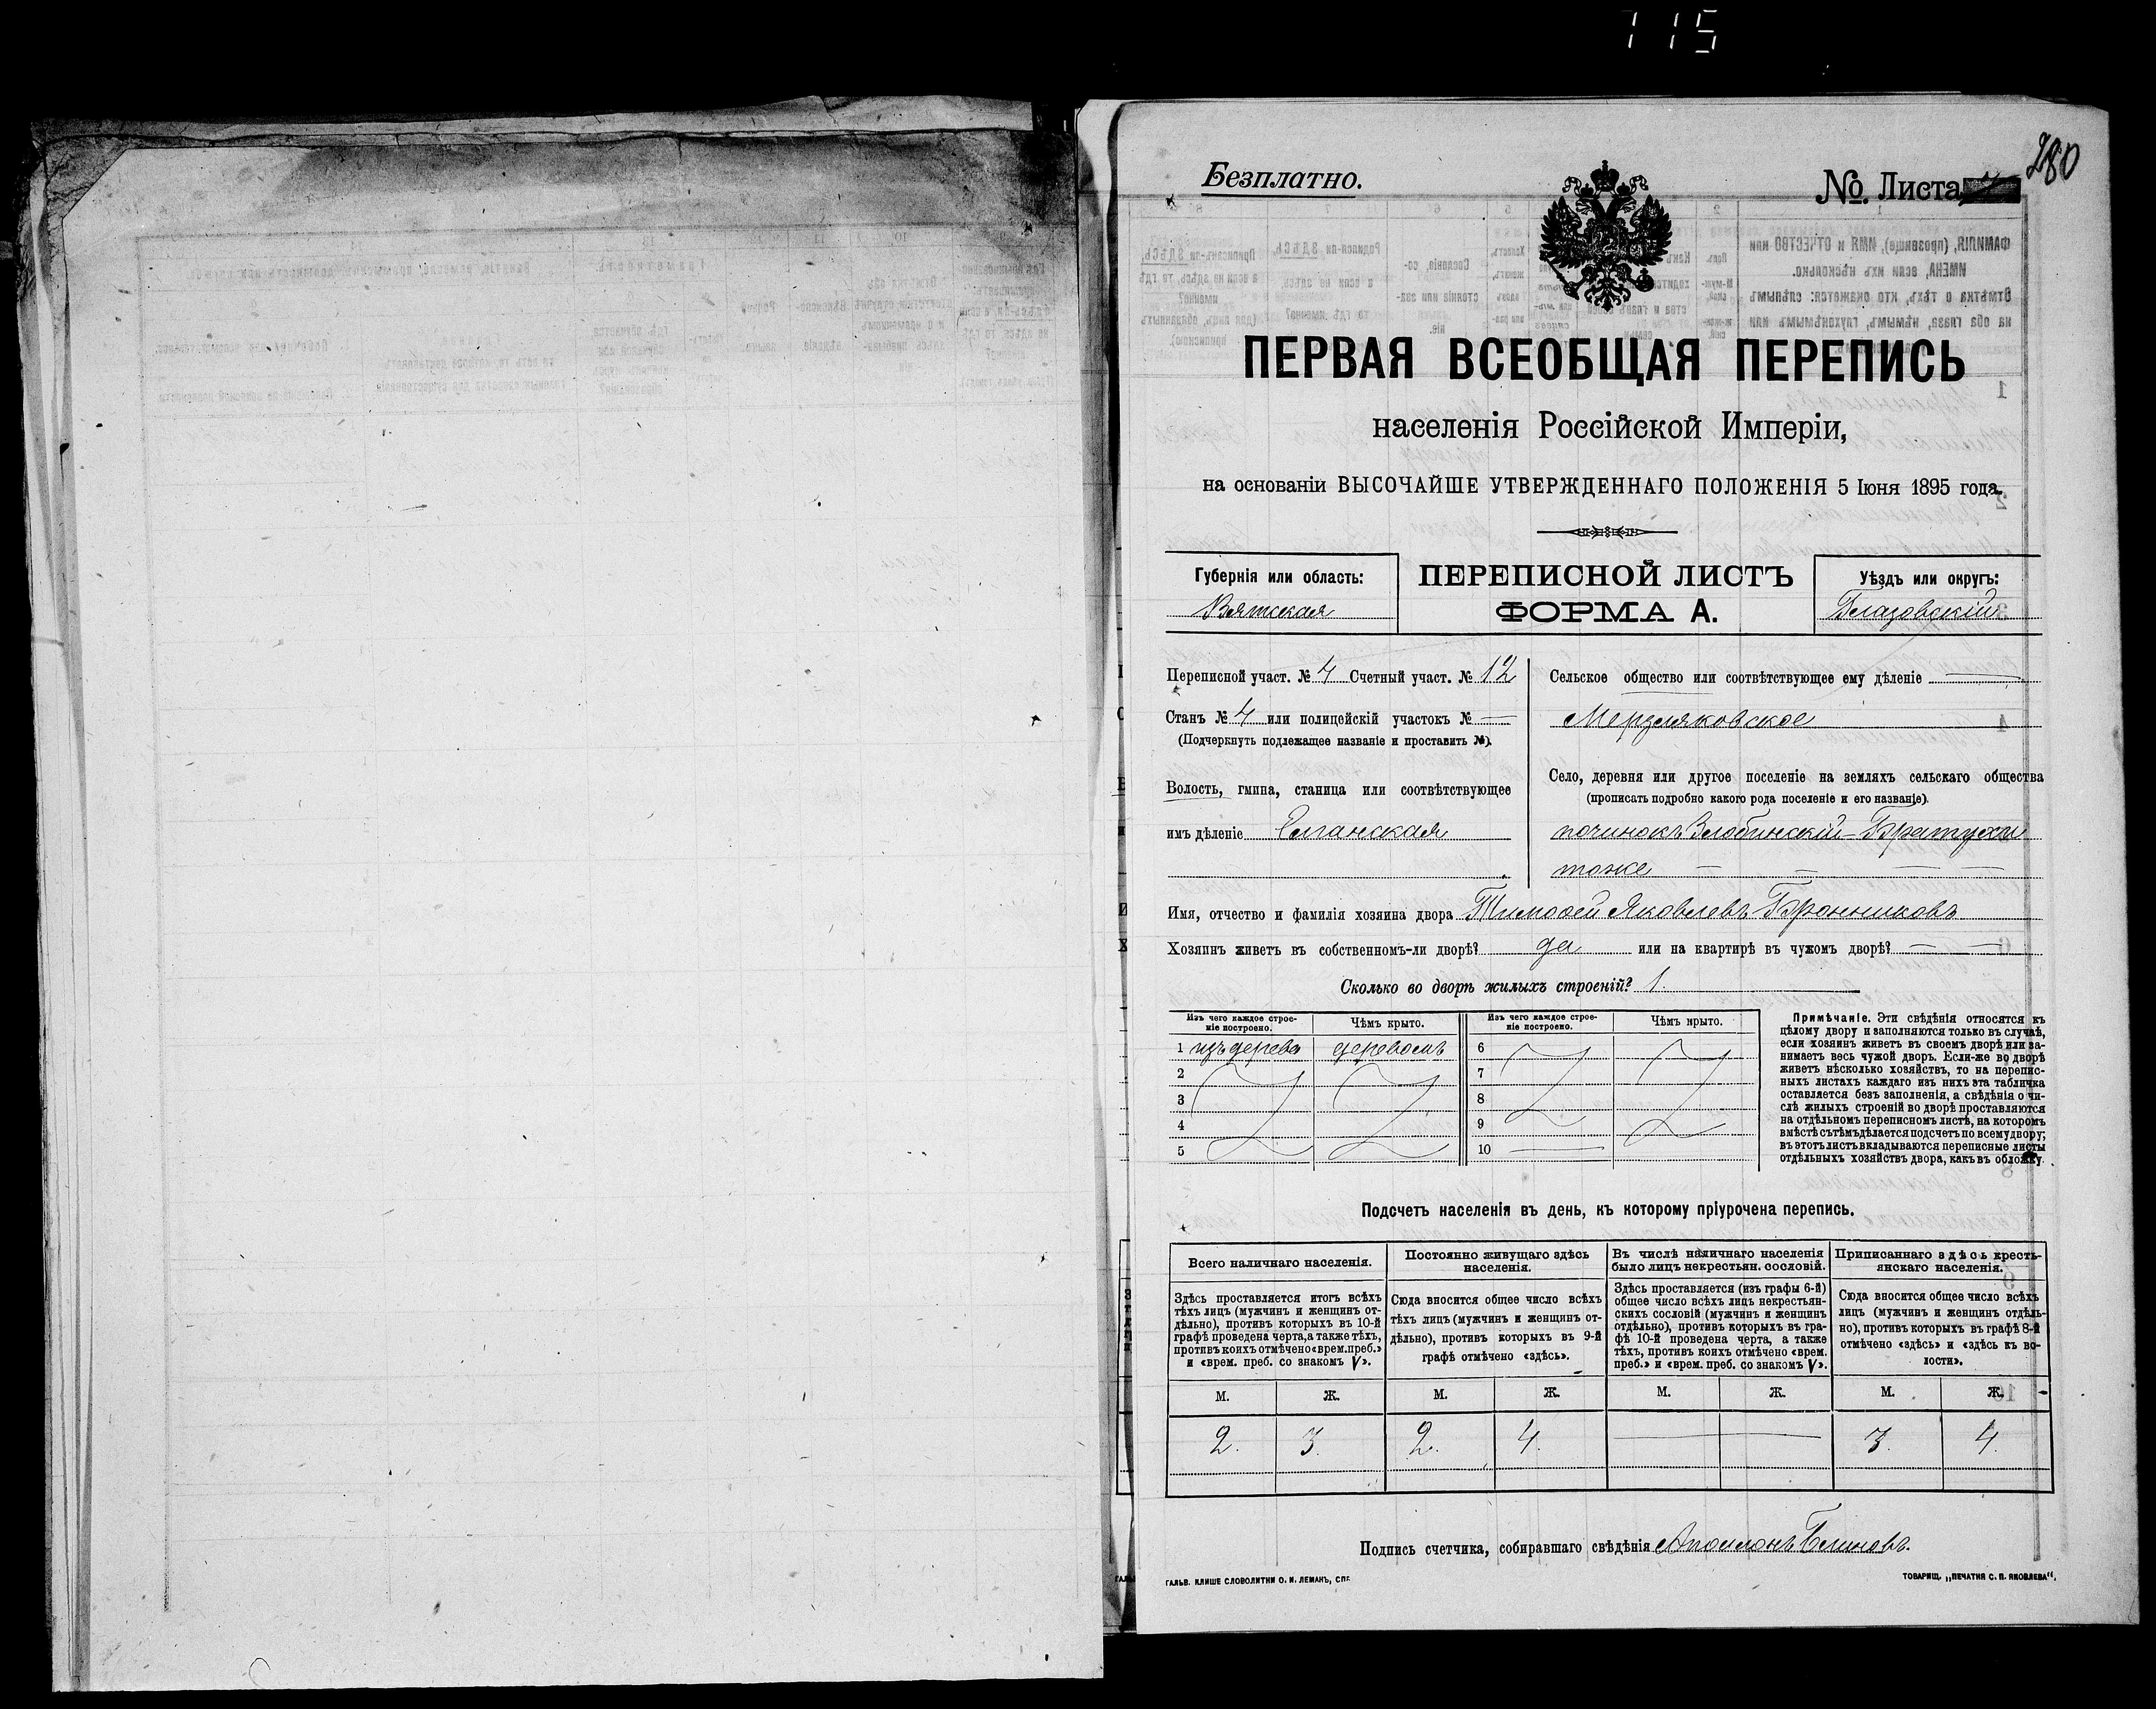 115
280
Безплатно.
№. Листа
ПЕРВАЯ ВСЕОБЩАЯ ПЕРЕПИСЬ
населенія Россійской Имперіи,
на основаніи ВЫСОЧАЙШЕ УТВЕРЖДЕННАГО ПОЛОЖЕНІЯ 5 Іюня 1895 года.
Губернія или область:
Вятская
ПЕРЕПИСНОЙ ЛИСТЪ
ФОРМА А.
Уѣздъ или округъ:
Глазовскій
Переписной участ. № 4 Счетный участ. № 12
Станъ № 4 или полицейскій участокъ № —
(Подчеркнуть подлежащее названіе и проставить №).
Волость, гмина, станица или соотвѣтствующее
имъ дѣленіе Елганская
Сельское общество или соотвѣтствующее ему дѣленіе —
Мерзляковское
Село, деревня или другое поселеніе на земляхъ сельскаго общества
(прописать подробно какого рода поселеніе и его названіе).
починокъ Злобинскій - Братухи
тоже — — —
Имя, отчество и фамилія хозяина двора Тимофей Яковлевъ Бронниковъ
Хозяинъ живетъ въ собственномъ-ли дворѣ? да или на квартирѣ въ чужомъ дворѣ? — —
Сколько во дворѣ жилыхъ строеній? 1.
Изъ чего каждое строе-
ніе построено.
Чѣмъ крыто.
Изъ чего каждое строе-
ніе построено.
Чѣмъ крыто.
1 изъ дерева деревомъ 6
2 7
3 8
4 9
5 10
Примѣчаніе. Эти свѣдѣнія относятся къ
цѣлому двору и заполняются только въ случаѣ,
если хозяинъ живетъ въ своемъ дворѣ или за-
нимаетъ весь чужой дворъ. Если-же во дворѣ
живетъ нѣсколько хозяйствъ, то на перепис-
ныхъ листахъ каждаго изъ нихъ эта табличка
оставляется безъ заполненія, а свѣдѣнія о чи-
слѣ жилыхъ строеній во дворѣ проставляются
на отдѣльномъ переписномъ листѣ, на которомъ
вмѣстѣ съ тѣмъ дѣлается подсчетъ по всему двору;
въ этотъ листъ вкладываются переписные листы
отдѣльныхъ хозяйствъ двора, какъ въ обложку.
Подсчетъ населенія въ день, къ которому пріурочена перепись.
Всего наличнаго населенія.
Здѣсь проставляется итогъ всѣхъ
тѣхъ лицъ (мужчинъ и женщинъ от-
дѣльно), противъ которыхъ въ 10-й
графѣ проведена черта, а также тѣхъ,
противъ коихъ отмѣчено «врем. преб.»
и «врем. преб. со знакомъ V».
Постоянно живущаго здѣсь
населенія.
Сюда вносится общее число всѣхъ
тѣхъ лицъ (мужчинъ и женщинъ от-
дѣльно), противъ которыхъ въ 9-й
графѣ отмѣчено «здѣсь».
Въ числѣ наличнаго населенія
было лицъ некрестьян. сословій.
Здѣсь проставляется (изъ графы 6-й)
общее число всѣхъ лицъ некрестьян-
скихъ сословій (мужчинъ и женщинъ
отдѣльно), противъ которыхъ въ гра-
фѣ 10-й проведена черта, а также
тѣхъ, противъ коихъ отмѣчено «врем.
преб.» и «врем. преб. со знакомъ V».
Приписаннаго здѣсь кресть-
янскаго населенія.
Сюда вносится общее число всѣхъ
лицъ (мужчинъ и женщинъ отдѣль-
но), противъ которыхъ въ графѣ 8-й
отмѣчено «здѣсь» и «здѣсь къ во-
лости».
М. Ж. М. Ж. М. Ж. М. Ж.
2. 3. 2. 4. — — 3. 4.
Подпись счетчика, собиравшаго свѣдѣнія Аполлонъ Блиновъ.
ГАЛЬВ. КЛИШЕ СЛОВОЛИТНИ О. И. ЛЕМАНЪ, СПБ.
ТОВАРИЩ. „ПЕЧАТНЯ С. П. ЯКОВЛЕВА“.